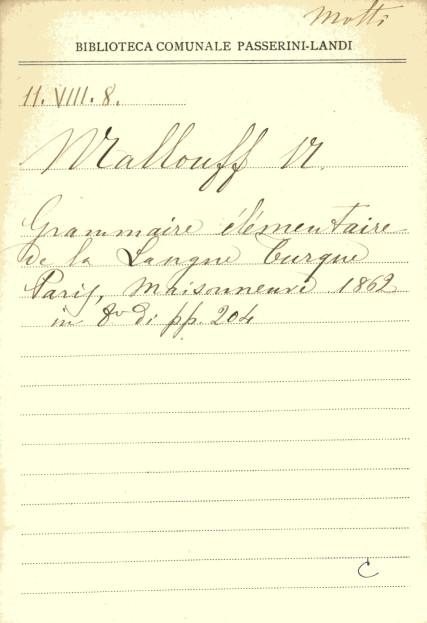 Motti
BIBLIOTECA COMUNALE PASSERINI-LANDI
11. VIII. 8.
Mallouff N.
Grammaire élémentaire
de la Langue Turque
Paris, Maisonneuve 1862
in 8vo di pp. 204
C